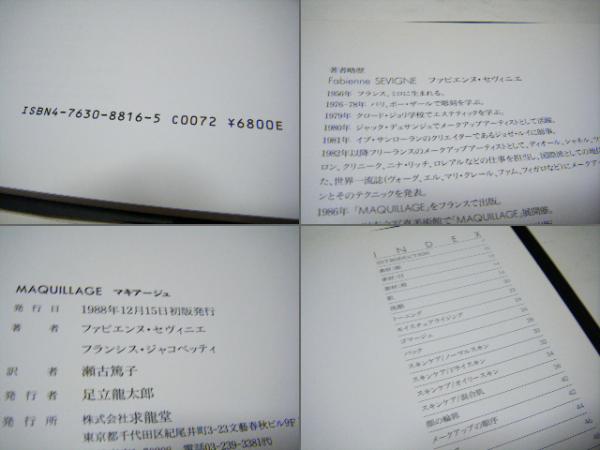 ISBN4-7630-8816-5 C0072 ¥6800E
著者略歴
Fabienne SEVIGNE ファビエンヌ・セヴィニエ
1956年 フランス、ミロに生まれる。
1976-78年 パリ、ボー・ザールで彫刻を学ぶ。
1979年 クロード・ジョリ学校でエステティックを学ぶ。
1980年 ジャック・デュサンジュでメークアップアーティストとして活躍。
1981年 イブ・サンローランのクリエイターであるジョゼ・ルイに師事。
1982年以降フリーランスのメークアップアーティストとして、ディオール、シャネル、
ロン、クリニーク、ニナ・リッチ、ロレアルなどの仕事を担当し、国際派としての地
た、世界一流誌(ヴォーグ、エル、マリ・クレール、ファム、フィガロなど)にメークアッ
ンとそのテクニックを発表。
1986年 「MAQUILLAGE」をフランスで出版。
美術館で「MAQUILLAGE」展開催。
MAQUILLAGE マキアージュ
発行日 1988年12月15日初版発行
著者 ファビエンヌ・セヴィニエ
フランシス・ジャコベッティ
訳者 瀬古篤子
発行者 足立龍太郎
発行所 株式会社求龍堂
東京都千代田区紀尾井町3-23文藝春秋ビル9F
電話03-239-3381代
INDEX
INTRODUCTION
素材/
素材/
素材/
肌
洗顔
トーニング
モイスチュアライジング
ゴマージュ
パック
スキンケア/ノーマルスキン
スキンケア/ドライスキン
スキンケア/オイリースキン
スキンケア/混合肌
顔の輪郭
メークアップの順序
22
24
26
28
32
36
38
40
42
42
44
46